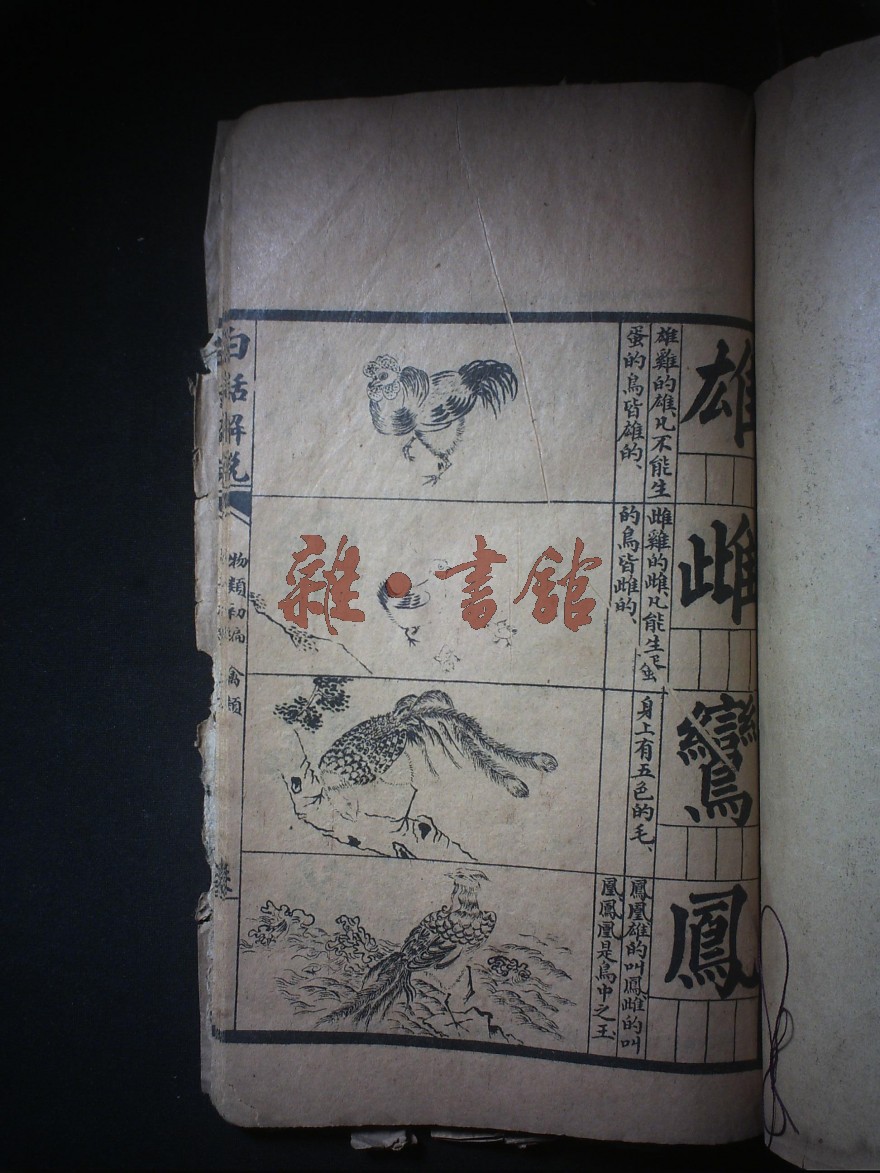 雄
雄雞的雄凡不能生
蛋的鳥皆雄的、
雌
雌雞的雌凡能生蛋
的鳥皆雌的、
鸞
身上有五色的毛、
鳳
鳳凰雄的叫鳳雌的叫
凰鳳凰是鳥中之王
白話解說
物類初編 禽類
雜·書館